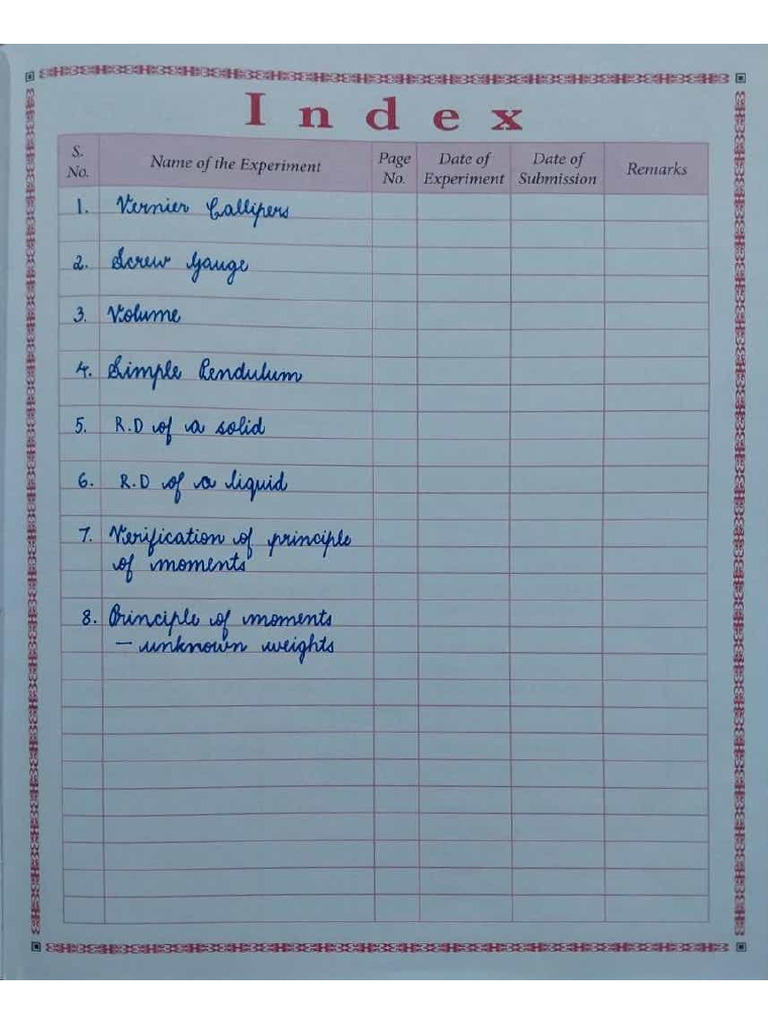 Index
S. No. Name of the Experiment Page No. Date of Experiment Date of Submission Remarks
1. Vernier Callipers
2. Screw Gauge
3. Volume
4. Simple Pendulum
5. R.D of a solid
6. R.D of a liquid
7. Verification of principle
of moments
8. Principle of moments
– unknown weights